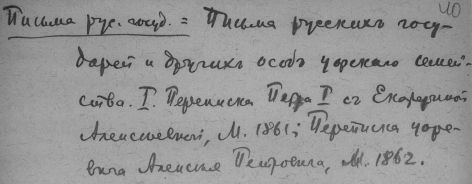 40
Письма рус. госуд. = Письма русскихъ госу-
дарей и другихъ особъ царскаго семей-
ства. I. Переписка Петра I съ Екатериной
Алексѣевной, М. 1861; Переписка царе-
вича Алексѣя Петровича, М. 1862.